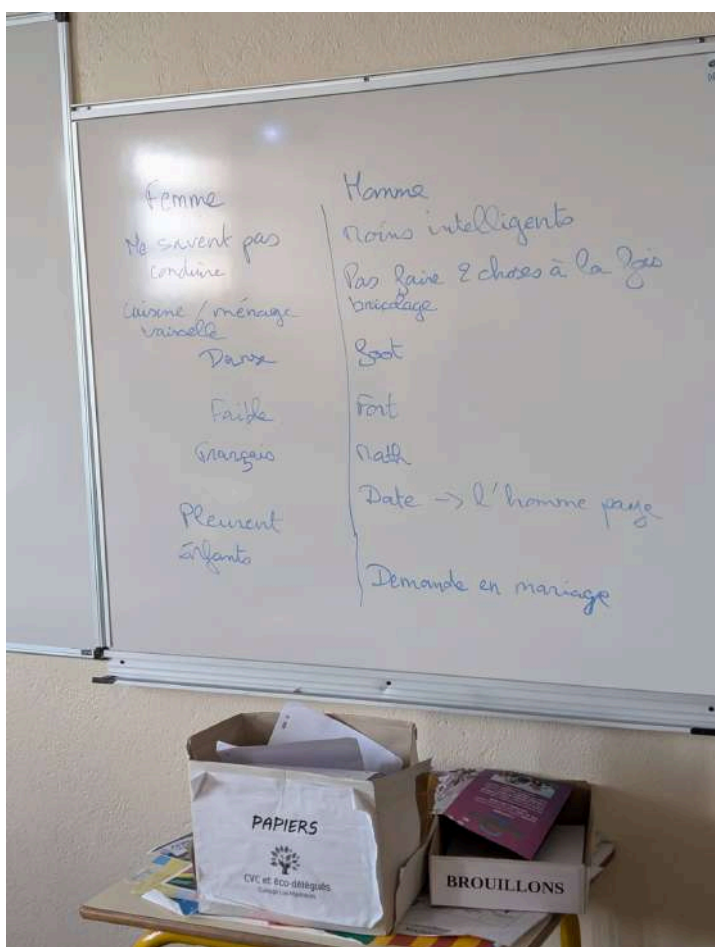 Femme
Ne savent pas
conduire
cuisine / ménage
vaisselle
Danse
Faible
Français
Pleurent
Enfants
Homme
Moins intelligents
Pas faire 2 choses à la fois
bricolage
foot
Fort
Math
Date -> l'homme paye
Demande en mariage
PAPIERS
CVC et éco-délégués
BROUILLONS